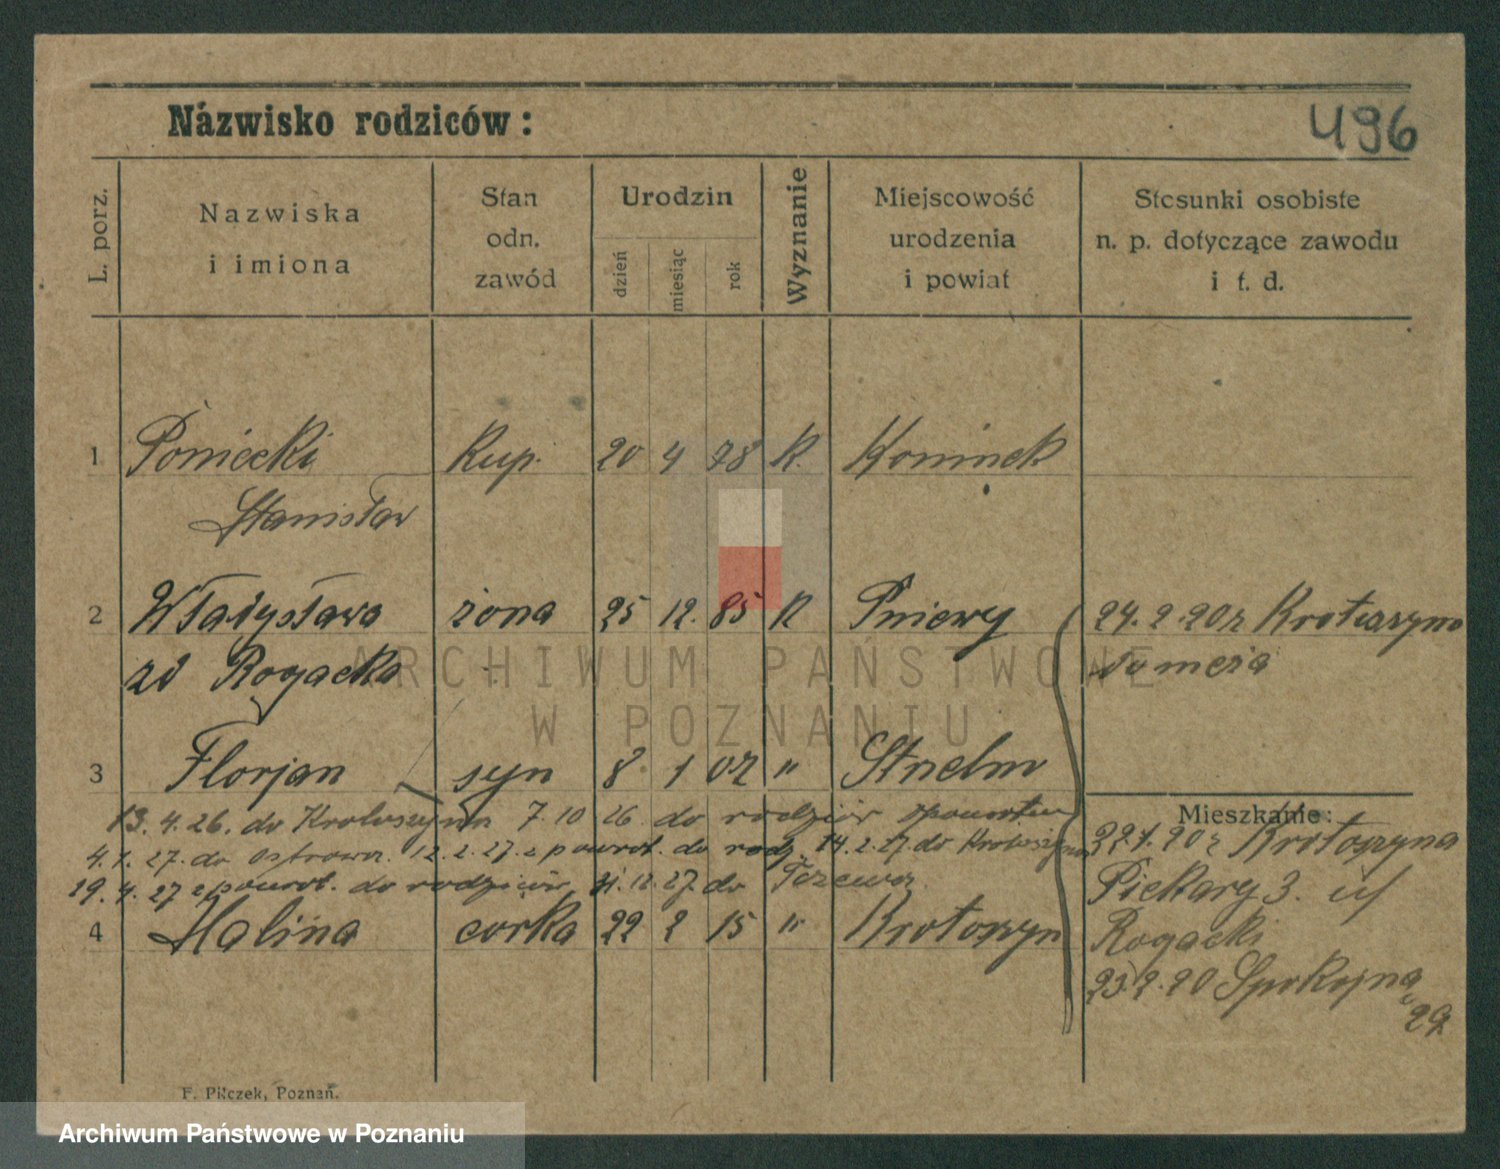 Názwisko rodziców:
496
L. porz.
Nazwiska
i imiona
Stan
odn.
zawód
Urodzin
dzień
miesiąc
rok
Wyznanie
Miejscowość
urodzenia
i powiat
Stosunki osobiste
n. p. dotyczące zawodu
i t. d.
1 Poniecki Kup. 20 4 78 K. Koninek
Stanisław
2 Władysława żona 25 12. 85 K Pniewy 24. 2. 20 r Krotoszyna
zd Rogacka
3 Florjan syn 8 1 07 " Strzelno
Mieszkanie:
13. 4. 26. do Krotoszyna 7. 10 26 do rodziców
4. 1. 27. do Ostrowa. 12. 2. 27. z powrot. do rodz. 14. 2. 27 do Krotoszyna
22. 1. 20 r Krotoszyna
19. 4. 27 z powrot. do rodziców 31. 12. 27. do Tczewa.
Piekary 3.
4 Halina córka 22 2 15 " Krotoszyn
Rogacki
23. 2. 20 Spokojna
29
F. Pilczek, Poznań.
ARCHIWUM PAŃSTWOWE
W POZNANIU
Archiwum Państwowe w Poznaniu